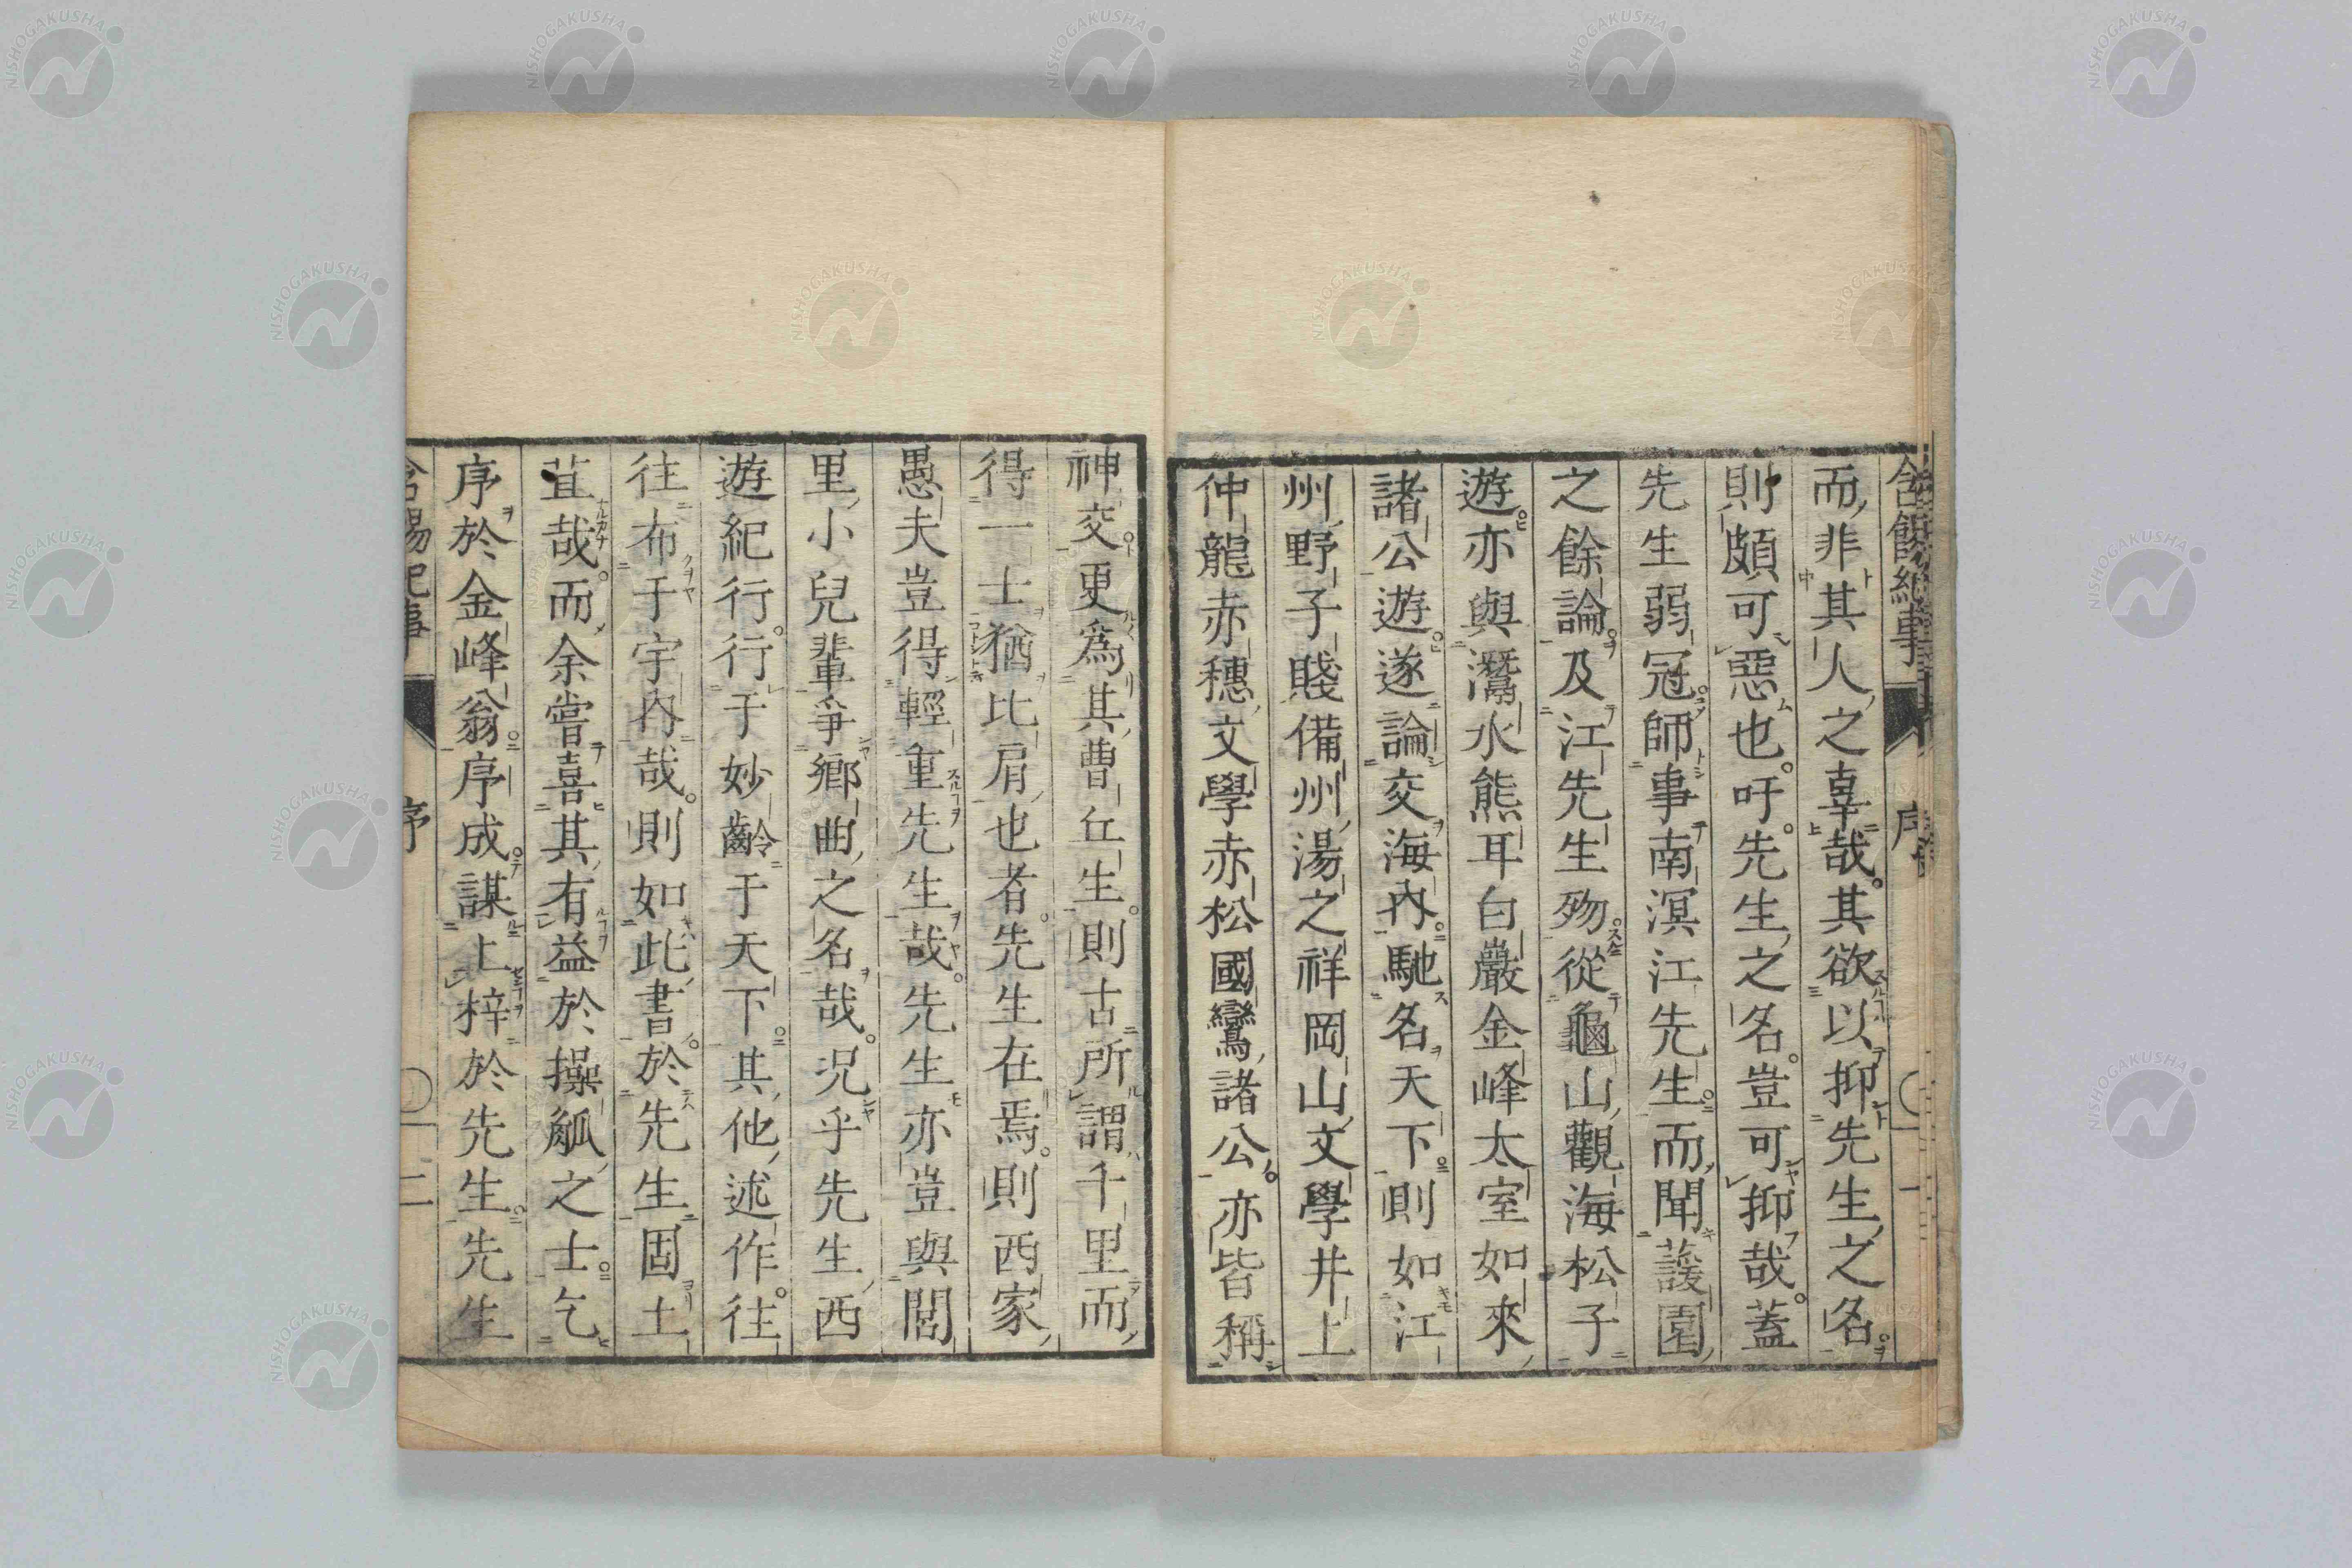 含餳紀事 序 一
而非其人之辜哉。其欲以抑先生之名。
則頗可惡也。吁。先生之名。豈可抑哉。蓋
先生弱冠。師事南溟江先生。而聞蘐園
之餘論。及江先生歿。從龜山觀海松子
遊。亦與灊水熊耳白巖金峰太室如來
諸公遊。遂論交海內。馳名天下。則如江
州野子賤備州湯之祥岡山文學井上
仲龍赤穗文學赤松國鸞諸公。亦皆稱
神交。更爲其曹丘生。則古所謂千里而
得一士。猶比肩也者。先生在焉。則西家
愚夫豈得輕重先生哉。先生亦豈與閭
里小兒輩爭鄉曲之名哉。況乎先生西
遊紀行。行于妙齡于天下。其他述作。往
往布于宇內哉。則如此書。於先生固土
苴哉。而余嘗喜其有益於操觚之士。乞
序於金峰翁。序成。謀上梓於先生。先生
含餳紀事 序 二
NISHOGAKUSHA